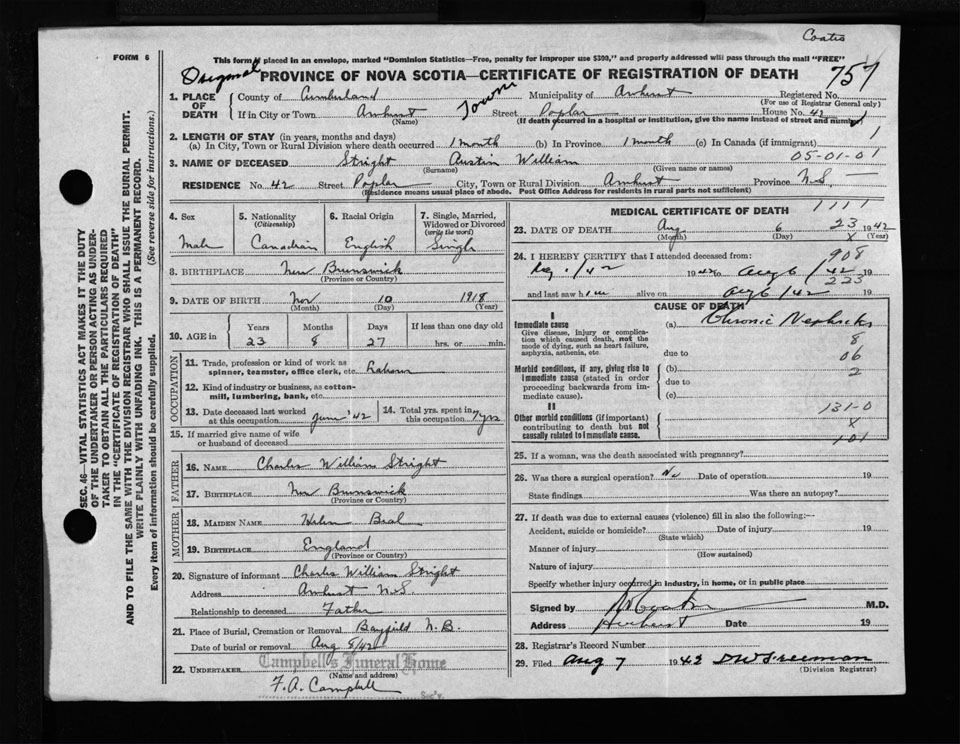 Coates
FORM 6
This form if placed in an envelope, marked "Dominion Statistics—Free, penalty for improper use $300," and properly addressed will pass through the mail "FREE"
Original
PROVINCE OF NOVA SCOTIA—CERTIFICATE OF REGISTRATION OF DEATH
757
1. PLACE OF DEATH
County of Cumberland
Municipality of Amherst
Registered No.
(For use of Registrar General only)
If in City or Town Amherst
(Name)
Town
Street Poplar
House No. 42
(If death occurred in a hospital or institution, give the name instead of street and number)
1
2. LENGTH OF STAY (in years, months and days)
(a) In City, Town or Rural Division where death occurred 1 month (b) In Province 1 month (c) In Canada (if immigrant)
05-01-01
3. NAME OF DECEASED Stright Austin William
(Surname) (Given name or names)
RESIDENCE No. 42 Street Poplar City, Town or Rural Division Amherst Province N.S.
(Residence means usual place of abode. Post Office Address for residents in rural parts not sufficient)
4. Sex
Male
5. Nationality
(Citizenship)
Canadian
6. Racial Origin
English
7. Single, Married, Widowed or Divorced
(write the word)
Single
8. BIRTHPLACE New Brunswick
(Province or Country)
9. DATE OF BIRTH Nov 10 1918
(Month) (Day) (Year)
10. AGE in
Years Months Days If less than one day old
23 8 27 hrs. or min.
OCCUPATION
11. Trade, profession or kind of work as spinner, teamster, office clerk, etc. Labour
12. Kind of industry or business, as cotton-mill, lumbering, bank, etc.
13. Date deceased last worked at this occupation June '42
14. Total yrs. spent in this occupation 7 yrs
15. If married give name of wife or husband of deceased
FATHER
16. NAME Charles William Stright
17. BIRTHPLACE New Brunswick
(Province or Country)
MOTHER
18. MAIDEN NAME Helen
19. BIRTHPLACE England
(Province or Country)
20. Signature of informant Charles William Stright
Address Amherst N.S.
Relationship to deceased Father
21. Place of Burial, Cremation or Removal Bayfield N.B.
Date of burial or removal Aug 8/42
22. UNDERTAKER Campbell's Funeral Home
(Name and address)
F. A. Campbell
Sec'y.
MEDICAL CERTIFICATE OF DEATH
1111
23. DATE OF DEATH Aug 6 1942
(Month) (Day) (Year)
23
x
24. I HEREBY CERTIFY that I attended deceased from:
908
1/42 1942 to Aug 6/42 19
223
and last saw him alive on Aug 6/42 19
CAUSE OF DEATH
I
Immediate cause
Give disease, injury or complication which caused death, not the mode of dying, such as heart failure, asphyxia, asthenia, etc
(a) Chronic Nephritis
8
due to
06
Morbid conditions, if any, giving rise to immediate cause (stated in order proceeding backwards from immediate cause).
(b)
2
due to
(c)
II
Other morbid conditions (if important) contributing to death but not causally related to immediate cause.
131-0
x
101
25. If a woman, was the death associated with pregnancy?
26. Was there a surgical operation? No Date of operation 19
State findings Was there an autopsy?
27. If death was due to external causes (violence) fill in also the following:—
Accident, suicide or homicide? Date of injury 19
(State which)
Manner of injury
(How sustained)
Nature of injury
Specify whether injury occurred in industry, in home, or in public place
Signed by M.D.
Address Amherst Date 19
28. Registrar's Record Number
29. Filed Aug 7 1942 D W Freeman
(Division Registrar)
SEC. 46—VITAL STATISTICS ACT MAKES IT THE DUTY
OF THE UNDERTAKER OR PERSON ACTING AS UNDER-
TAKER TO OBTAIN ALL THE PARTICULARS REQUIRED
IN THE "CERTIFICATE OF REGISTRATION OF DEATH"
AND TO FILE THE SAME WITH THE DIVISION REGISTRAR WHO SHALL ISSUE THE BURIAL PERMIT.
WRITE PLAINLY WITH UNFADING INK. THIS IS A PERMANENT RECORD.
Every item of information should be carefully supplied. (See reverse side for instructions.)